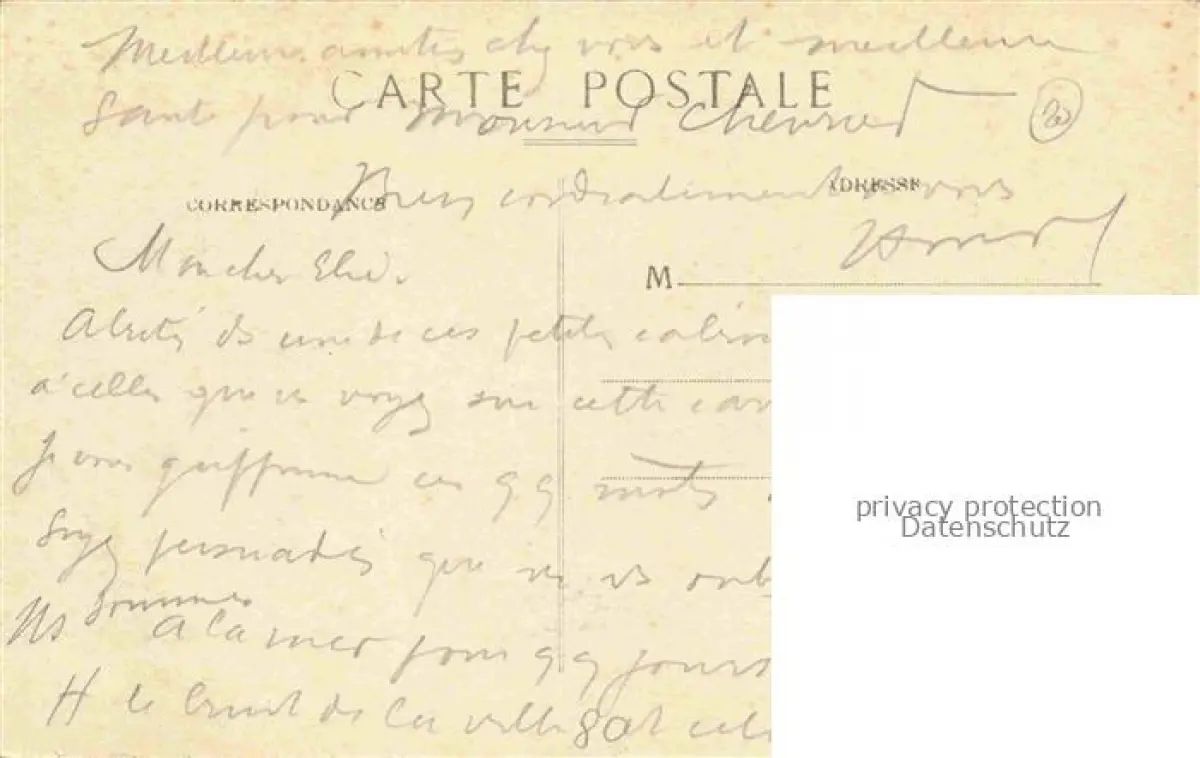 Meilleures amitiés chez vous et meilleure
santé pour Monsieur Chevrier
CARTE POSTALE
20
Bien cordialement à vous
CORRESPONDANCE
ADRESSE
M
Mon cher Elie.
Abrités ds une de ces petites
à celles que vs voyez sur cette
Je vous griffonne ces qq mots
Soyez persuadés que ns vs
Ns sommes à la mer pour qq jours
le bruit de la ville
privacy protection
Datenschutz